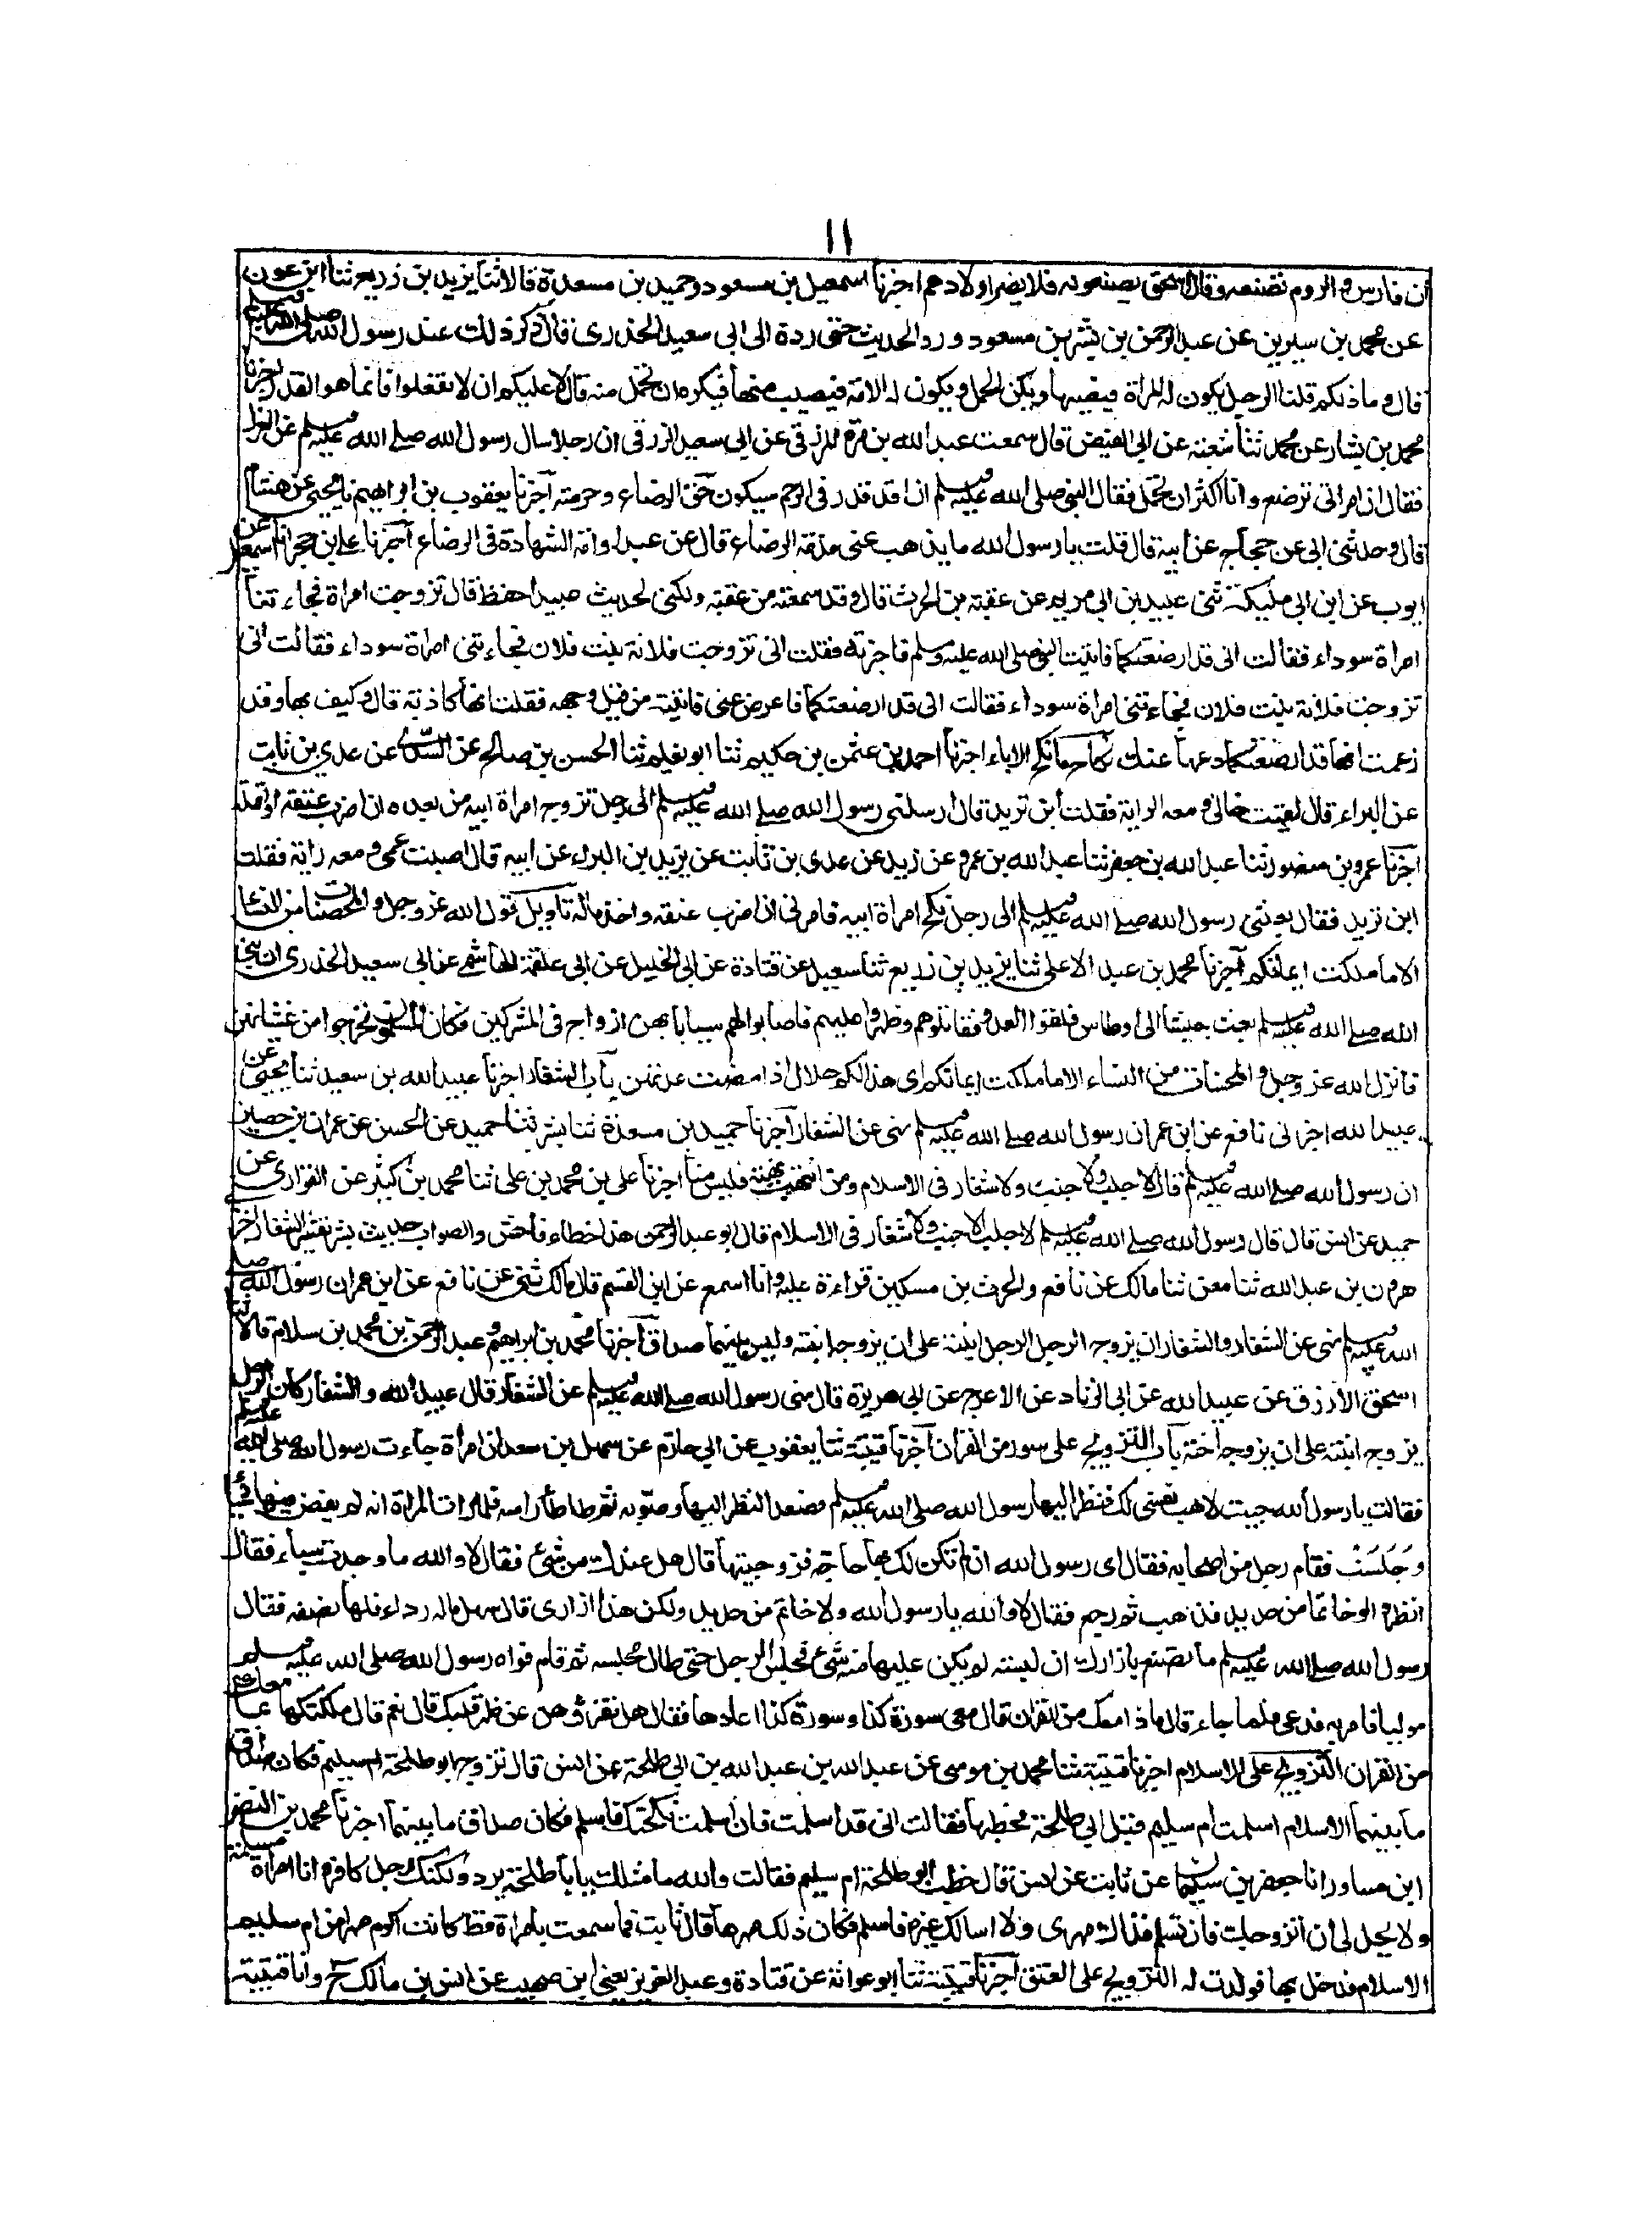 ١١
ان فارس والروم تصنعه وقال اسحق يصنعونه فلا يضر اولادهم اخبرنا اسمعيل بن مسعود وحميد بن مسعدة قالا ثنا يزيد بن زريع ثنا ابن عون
عن محمد بن سيرين عن عبد الرحمن بن بشر بن مسعود ورد الحديث حتى رده الى ابي سعيد الخدري قال ذكر ذلك عند رسول الله صلى الله عليه وسلم
قال وما ذلكم قلنا الرجل يكون له المراة فيصيبها ويكره الحمل ويكون له الامة فيصيب منها فيكره ان تحمل منه قال لا عليكم ان لا تفعلوا فانما هو القدر اخبرنا
محمد بن بشار عن محمد ثنا شعبة عن ابي الفيض قال سمعت عبد الله بن مرة الزرقي عن ابي سعيد الزرقي ان رجلا سال رسول الله صلى الله عليه وسلم عن العزل
فقال ان امراتي ترضع وانا اكثر ان تحمل فقال النبي صلى الله عليه وسلم ان ما قد قدر في الرحم سيكون حق الرضاع وحرمته اخبرنا يعقوب بن ابراهيم نا يحيى عن هشام
قال وحدثني ابي عن حجاج عن ابيه قال قلت يا رسول الله ما يذهب عني مذمة الرضاع قال عن عبد او امة الشهادة في الرضاع اخبرنا علي بن حجر انا اسمعيل عن
ايوب عن ابن ابي مليكة ثني عبيد بن ابي مريم عن عقبة بن الحرث قال وقد سمعته من عقبة ولكني لحديث عبيد احفظ قال تزوجت امراة فجاءتنا
امراة سوداء فقالت اني قد ارضعتكما فاتيت النبي صلى الله عليه وسلم فاخبرته فقلت اني تزوجت فلانة بنت فلان فجاءتني امراة سوداء فقالت اني
تزوجت فلانة بنت فلان فجاءتني امراة سوداء فقالت اني قد ارضعتكما فاعرض عني فاتيته من قبل وجهه فقلت انها كاذبة قال وكيف بها وقد
زعمت انها قد ارضعتكما دعها عنك نكاح ما نكح الاباء اخبرنا احمد بن عثمن بن حكيم ثنا ابو نعيم ثنا الحسن بن صالح عن السدي عن عدي بن ثابت
عن البراء قال لقيت خالي ومعه الراية فقلت اين تريد قال ارسلني رسول الله صلى الله عليه وسلم الى رجل تزوج امراة ابيه من بعده ان اضرب عنقه او اقتله
اخبرنا عمرو بن منصور ثنا عبد الله بن جعفر ثنا عبد الله بن عمرو عن زيد عن عدي بن ثابت عن يزيد بن البراء عن ابيه قال اصبت عمي ومعه راية فقلت
اين تريد فقال بعثني رسول الله صلى الله عليه وسلم الى رجل نكح امراة ابيه فامرني ان اضرب عنقه واخذ ماله تاويل قول الله عز وجل والمحصنات من النساء
الا ما ملكت ايمانكم اخبرنا محمد بن عبد الاعلى ثنا يزيد بن زريع ثنا سعيد عن قتادة عن ابي الخليل عن ابي علقمة الهاشمي عن ابي سعيد الخدري ان نبي
الله صلى الله عليه وسلم بعث جيشا الى اوطاس فلقوا العدو فقاتلوهم وظهروا عليهم فاصابوا لهم سبايا بهن ازواج في المشركين فكان المسلمون تحرجوا من غشيانهن
فانزل الله عز وجل والمحصنات من النساء الا ما ملكت ايمانكم اى هذا لكم حلال اذا مضت عدتهن باب الشغار اخبرنا عبيد الله بن سعيد ثنا يحيى عن
عبيد الله اخبرني نافع عن ابن عمر ان رسول الله صلى الله عليه وسلم نهى عن الشغار اخبرنا حميد بن مسعدة ثنا بشر ثنا حميد عن الحسن عن عمران بن حصين
ان رسول الله صلى الله عليه وسلم قال لا جلب ولا جنب ولا شغار في الاسلام ومن انتهب نهبة فليس منا اخبرنا علي بن محمد بن علي ثنا محمد بن كثير عن الفزاري عن
حميد عن انس قال قال رسول الله صلى الله عليه وسلم لا جلب ولا جنب ولا شغار في الاسلام قال ابو عبد الرحمن هذا خطاء فاحش والصواب حديث بشر تفسير الشغار اخبرنا
هرون بن عبد الله ثنا معن ثنا مالك عن نافع والحرث بن مسكين قراءة عليه وانا اسمع عن ابن القسم قال مالك ثني عن نافع عن ابن عمر ان رسول الله صلى
الله عليه وسلم نهى عن الشغار والشغار ان يزوج الرجل الرجل ابنته على ان يزوجه ابنته وليس بينهما صداق اخبرنا محمد بن ابراهيم وعبد الرحمن بن محمد بن سلام قالا ثنا
اسحق الازرق عن عبيد الله عن ابي الزناد عن الاعرج عن ابي هريرة قال نهى رسول الله صلى الله عليه وسلم عن الشغار قال عبيد الله والشغار كان الرجل
يزوج ابنته على ان يزوجه اخته باب التزويج على سور من القران اخبرنا قتيبة ثنا يعقوب عن ابي حازم عن سهل بن سعد ان امراة جاءت رسول الله صلى الله عليه وسلم
فقالت يا رسول الله جيت لاهب نفسي لك فنظر اليها رسول الله صلى الله عليه وسلم فصعد النظر اليها وصوبه ثم طاطا راسه فلما رات المراة انه لم يقض فيها شيئا
وجلست فقام رجل من اصحابه فقال اى رسول الله ان لم تكن لك بها حاجة فزوجنيها قال هل عندك من شئ فقال لا والله ما وجدت شياء فقال
انظر ولو خاتما من حديد فذهب ثم رجع فقال لا والله يا رسول الله ولا خاتم من حديد ولكن هذا ازاري قال سهل ماله رداء فلها نصفه فقال
رسول الله صلى الله عليه وسلم ما تصنع بازارك ان لبسته لم يكن عليها منه شئ فجلس الرجل حتى طال مجلسه ثم قام فراه رسول الله صلى الله عليه وسلم
موليا فامر به فدعي فلما جاء قال ماذا معك من القران قال معي سورة كذا وسورة كذا عددها فقال هل تقرؤهن عن ظهر قلبك قال نعم قال ملكتكها بما معك
من القران التزويج على الاسلام اخبرنا قتيبة ثنا محمد بن موسى عن عبد الله بن عبد الله بن ابي طلحة عن انس قال تزوج ابو طلحة ام سليم فكان صداق
ما بينهما الاسلام اسلمت ام سليم قبل ابي طلحة فخطبها فقالت اني قد اسلمت فان اسلمت نكحتك فاسلم فكان صداق ما بينهما اخبرنا محمد بن النضر
ابن مساور انا جعفر بن سليمان عن ثابت عن انس قال خطب ابو طلحة ام سليم فقالت والله ما مثلك يا با طلحة يرد ولكنك رجل كافر وانا امراة مسلمة
ولا يحل لي ان اتزوجك فان تسلم فذاك مهري ولا اسالك غيره فاسلم فكان ذلك مهرها قال ثابت فما سمعت بامراة قط كانت اكرم مهرا من ام سليم
الاسلام فدخل بها فولدت له التزويج على العتق اخبرنا قتيبة ثنا ابو عوانة عن قتادة وعبد العزيز يعني ابن صهيب عن انس بن مالك ح وانا قتيبة